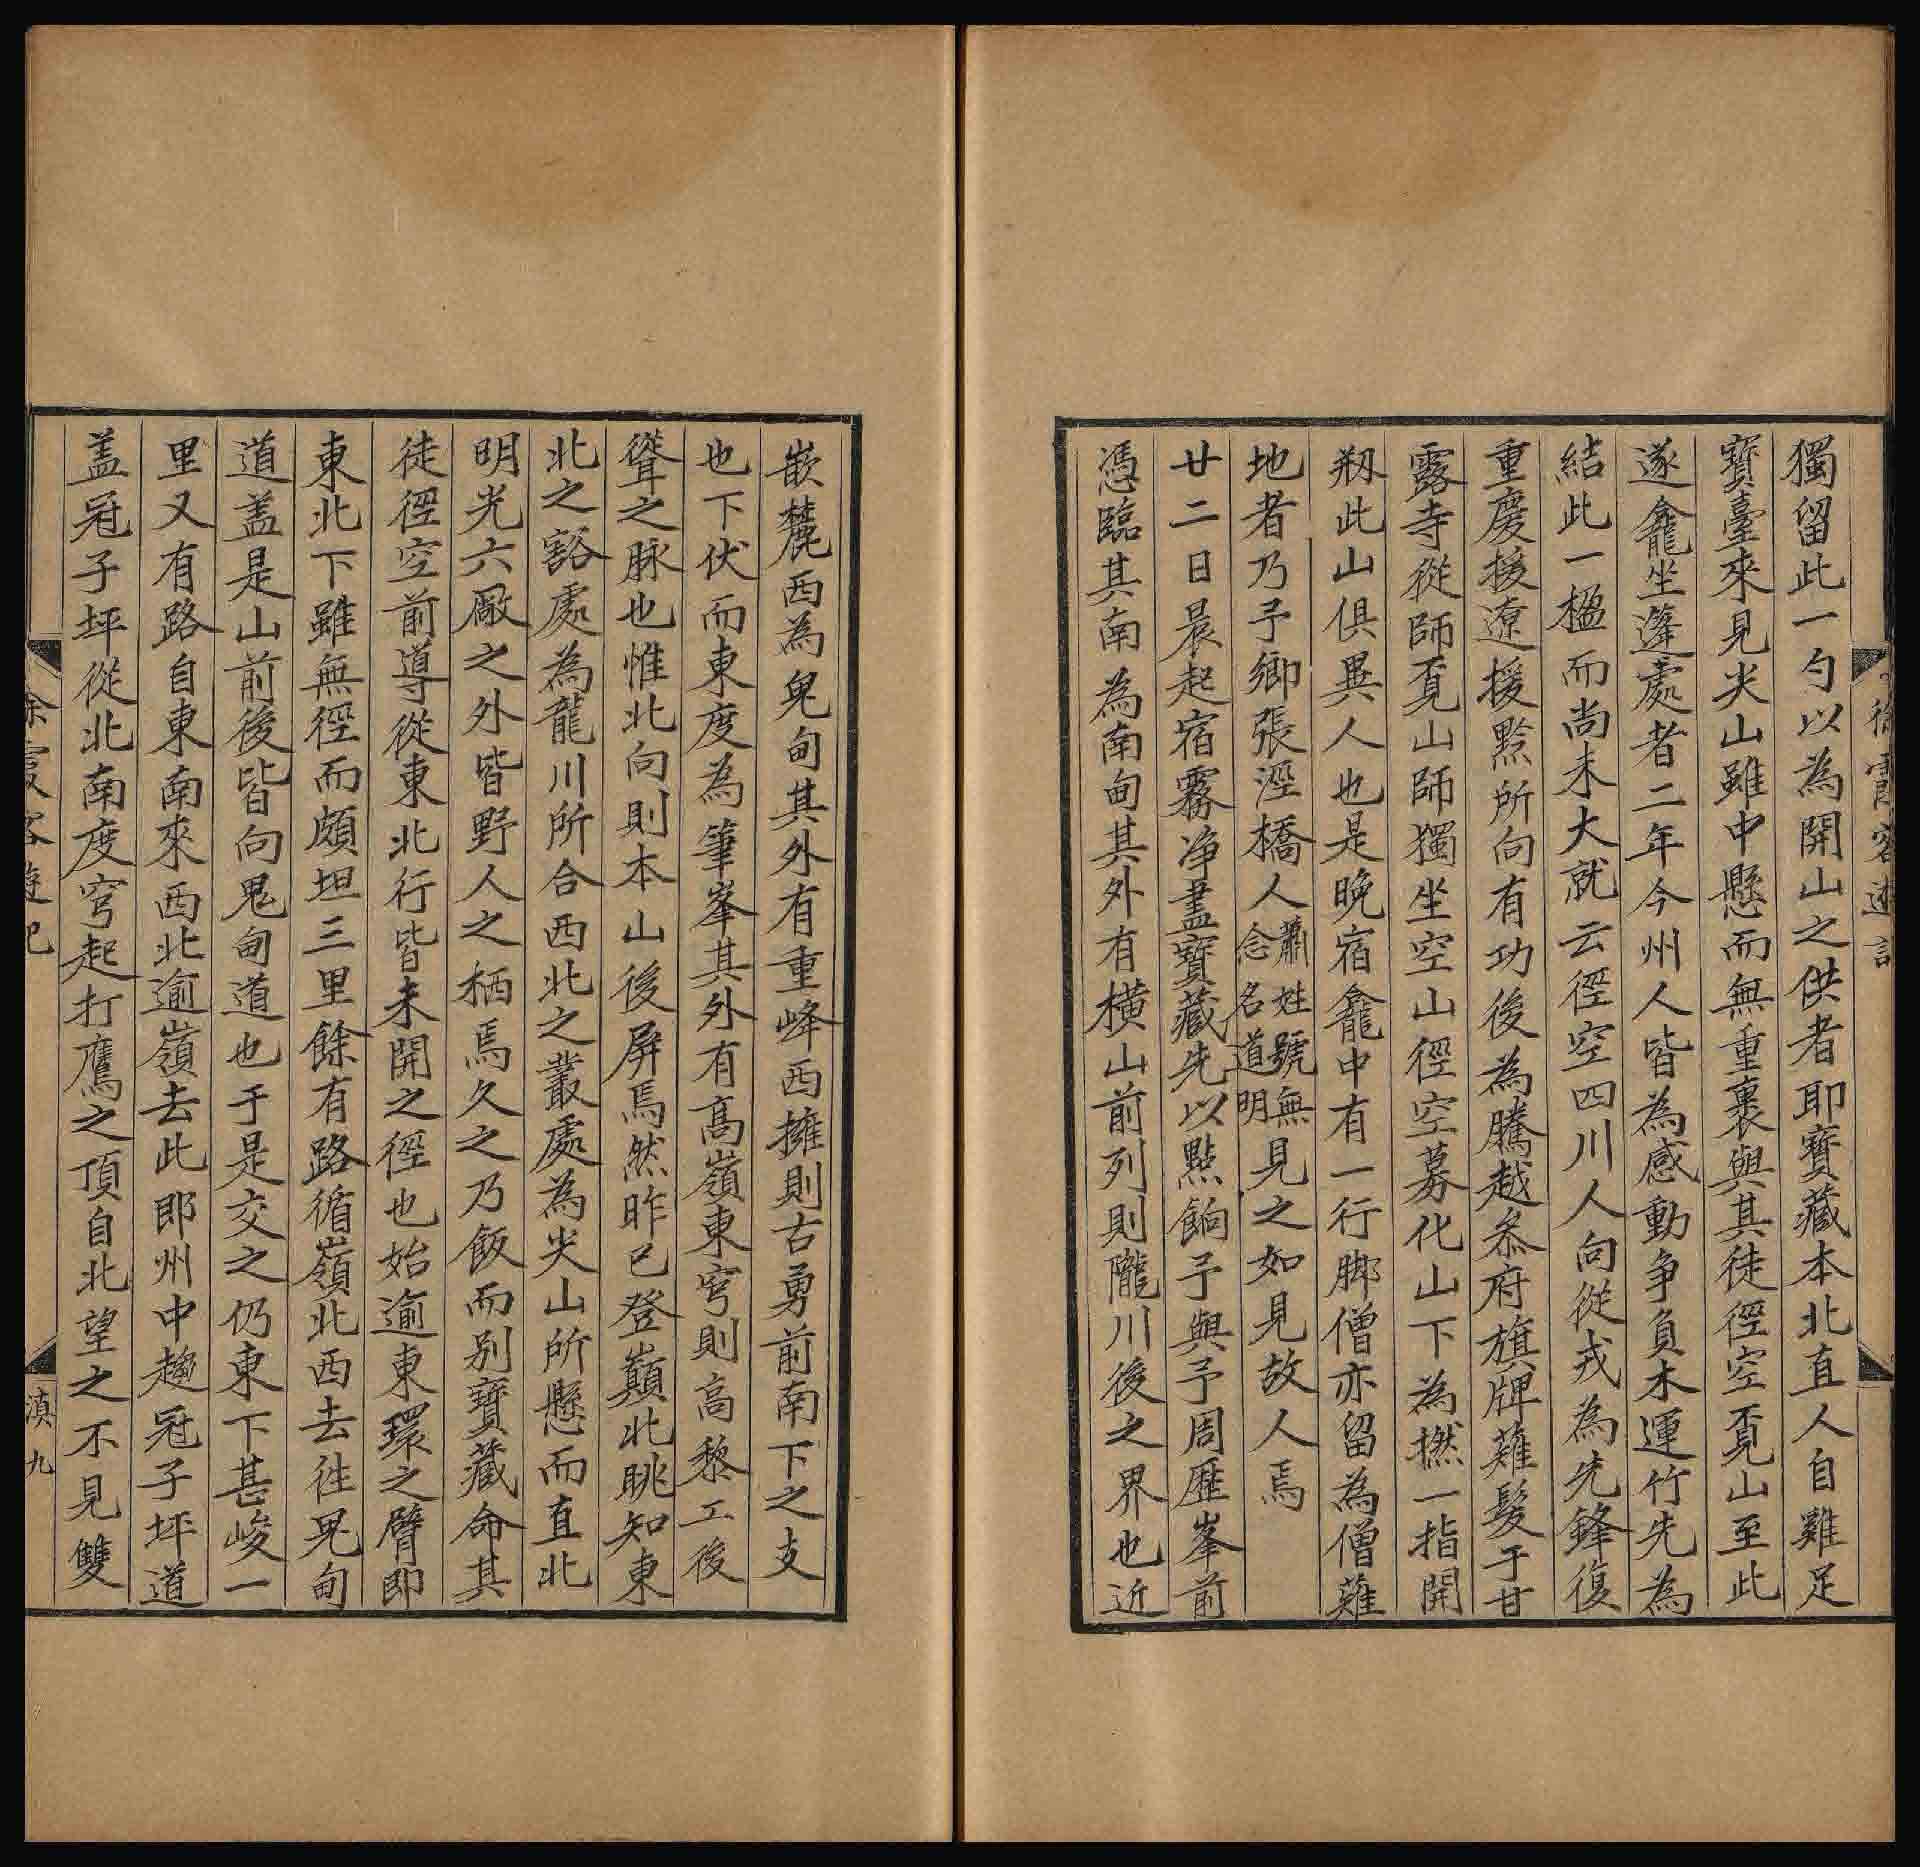 獨留此一勺以為開山之供者耶寶藏本北直人自雞足
寶臺來見尖山雖中懸而無重裹與其徒徑空覔山至此
遂龕坐蓬處者二年今州人皆為感動爭負木運竹先為
結此一楹而尚未大就云徑空四川人向從戎為先鋒復
重慶援遼援黔所向有功後為騰越叅府旗牌薙髮于甘
露寺從師覔山師獨坐空山徑空募化山下為撚一指開
剏此山俱異人也是晚宿龕中有一行脚僧亦留為僧薙
地者乃予鄉張涇橋人
蕭姓號無
念名道明
見之如見故人焉
廿二日晨起宿霧净盡寶藏先以點餉予與予周歷峯前
憑臨其南為南甸其外有橫山前列則隴川後之界也近
嵌麓西為皃甸其外有重峰西擁則古勇前南下之支
也下伏而東度為筆峯其外有高嶺東穹則高黎工後
聳之脉也惟北向則本山後屏焉然昨已登巔北眺知東
北之豁處為龍川所合西北之叢處為尖山所懸而直北
明光六厰之外皆野人之栖焉久之乃飯而别寶藏命其
徒徑空前導從東北行皆未開之徑也始逾東環之臂即
東北下雖無徑而頗坦三里餘有路循嶺北西去徃皃甸
道盖是山前後皆向鬼甸道也于是交之仍東下甚峻一
里又有路自東南來西北逾嶺去此即州中趨冠子坪道
盖冠子坪從北南度穹起打鷹之頂自北望之不見雙
徐霞客遊記
滇九